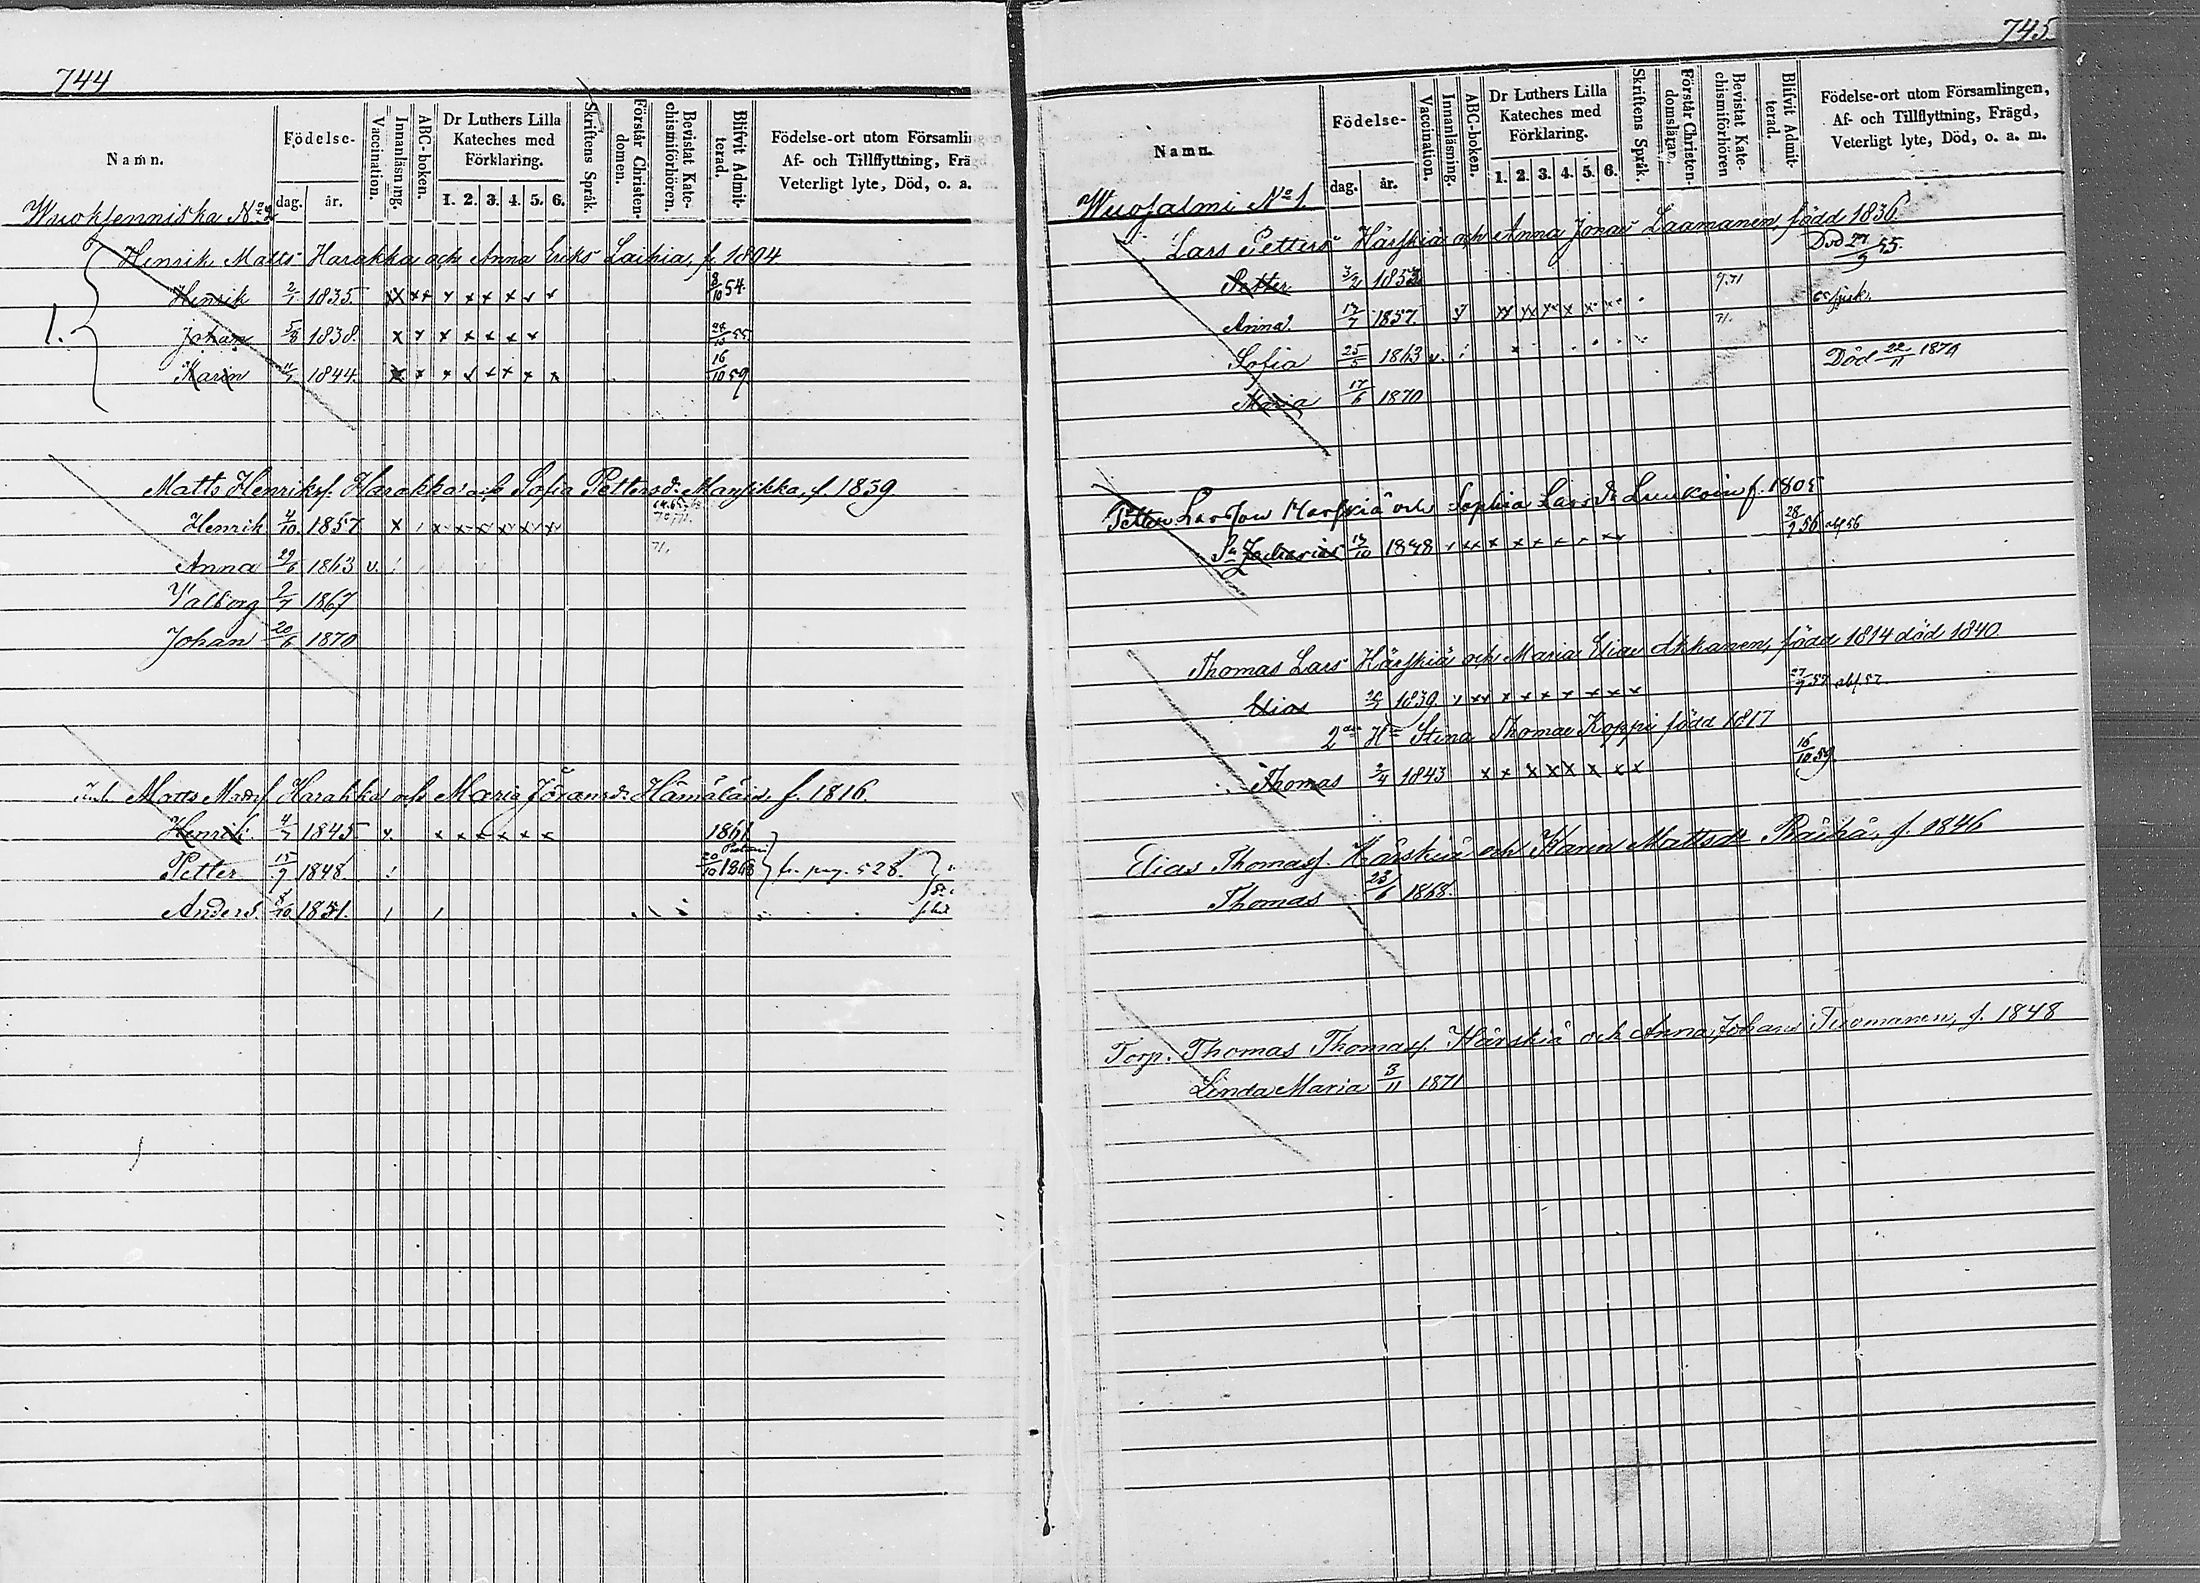 744
Namn.
Födelse-
dag. år.
Vaccination.
Innanläsning.
ABC-boken.
Dr Luthers Lilla
Kateches med
Förklaring.
1. 2. 3. 4. 5. 6.
Skriftens Språk.
Förstår Christen-
domen.
Bevistat Kate-
chismiförhören.
Blifvit Admit-
terad.
Födelse-ort utom Församlin
Af- och Tillflyttning, Fräg
Veterligt lyte, Död, o. a.
Wuoksenniska No 2
Henrik Matts Harakka och Anna Eriks Laihia, f. 1804
1.
Henrik 2/1 1835 8/10 54.
Johan 5/8 1838. 55
Karin 1844. 16/10 59.
Matts Henriksf. Harakka och Sofia Pettersdr Mansikka, f. 1839
Henrik 4/10 1857 70, 71.
Anna 29/6 1863 v. 71.
Valborg 1867
Johan 20/6 1870
Matts Mattsf. Harakka och Maria Göransdr Hämäläin, f. 1816.
Henrik 4/7 1845 1861
Petter 15/9 1848 20/10 1868 fr. pag. 528.
Anders 8/10 1851.
745
Namn.
Födelse-
dag. år.
Vaccination.
Innanläsning.
ABC-boken.
Dr Luthers Lilla
Kateches med
Förklaring.
1. 2. 3. 4. 5. 6.
Skriftens Språk.
Förstår Christen-
domsläran.
Bevistat Kate-
chismiförhören
Blifvit Admit-
terad.
Födelse-ort utom Församlingen,
Af- och Tillflyttning, Frägd,
Veterligt lyte, Död, o. a. m.
Wuosalmi No 1.
Lars Petters Härskiä och Anna Jonas Laamanen, född 1836.
Petter 3/2 1853 Död 27/9 55.
Anna 17/7 1857. 71
Sofia 25/5 1863 v. 71.
Maria 17/6 1870 Död 22/11 1870
Petter Larsson Härskiä och Sophia Lars dr Luukoin f. 1805
Sn Zacharias 13/10 1838 28/9 56 abs. 56
Thomas Lars Härskiä och Maria Elias Akkanen, född 1814 död 1840
Elias 1839. 27/9 57 abs. 57.
2dra H. Stina Thomae Koppi född 1817
Thomas 2/4 1843 16/10 59.
Elias Thomasf. Härskiä och Karin Mattsdr Räihä, f. 1846
Thomas 23/6 1868.
Torp. Thomas Thomasf. Härskiä och Anna Johans Tuomanen, f. 1848
Linda Maria 3/11 1871